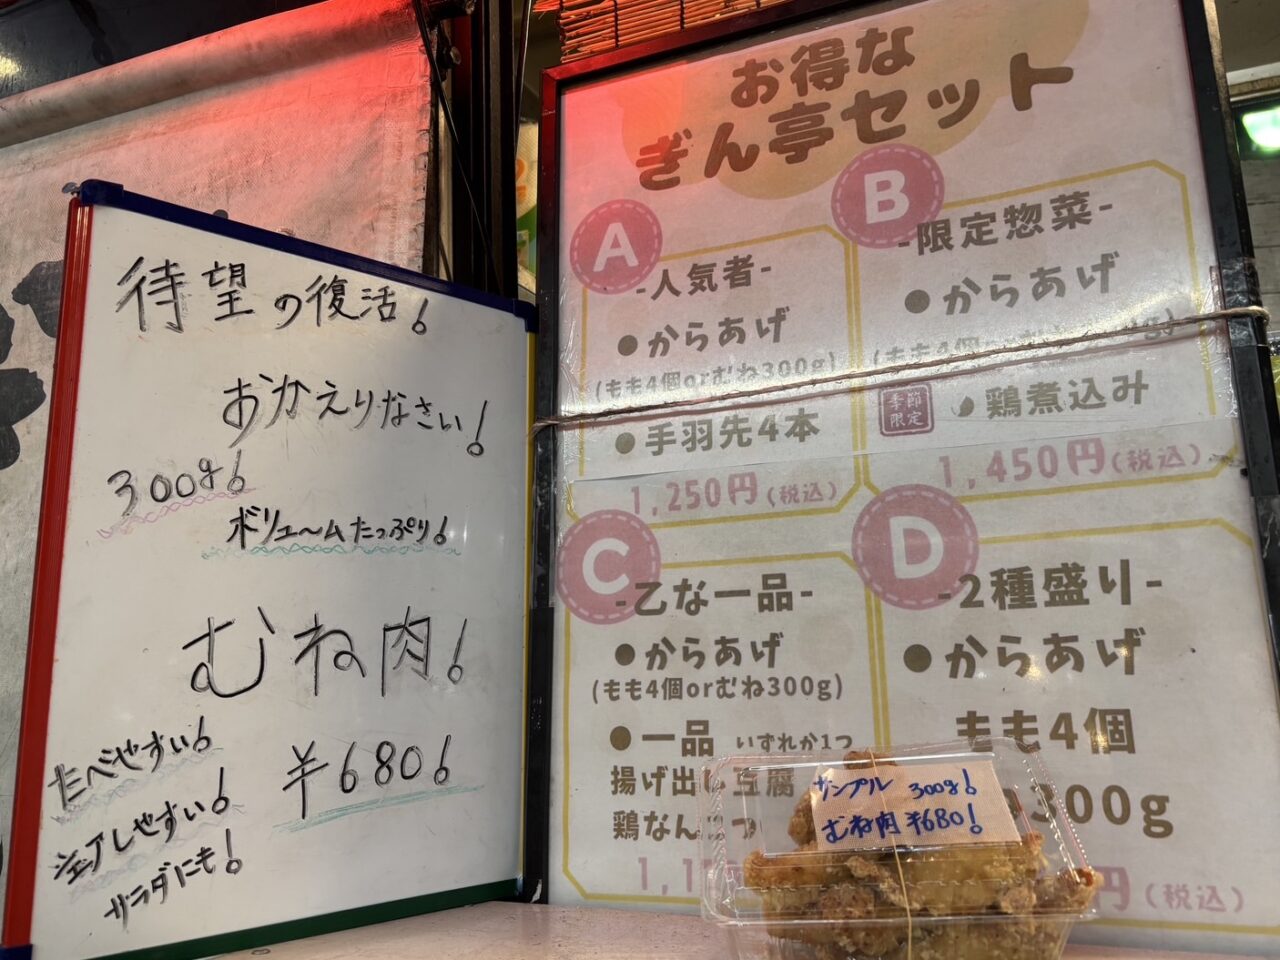 待望の復活!
おかえりなさい!
300g!
ボリュームたっぷり!
むね肉!
たべやすい!
シェアしやすい!
サラダにも!
¥680!
お得な
ぎん亭セット
A
-人気者-
●からあげ
(もも4個orむね300g)
●手羽先4本
1,250円(税込)
B
-限定惣菜-
●からあげ
(もも4個
季節
限定
鶏煮込み
1,450円(税込)
C
-乙な一品-
●からあげ
(もも4個orむね300g)
●一品 いずれか1つ
揚げ出し豆腐
鶏なん
D
-2種盛り-
●からあげ
もも4個
300g
円(税込)
サンプル 300g!
むね肉¥680!